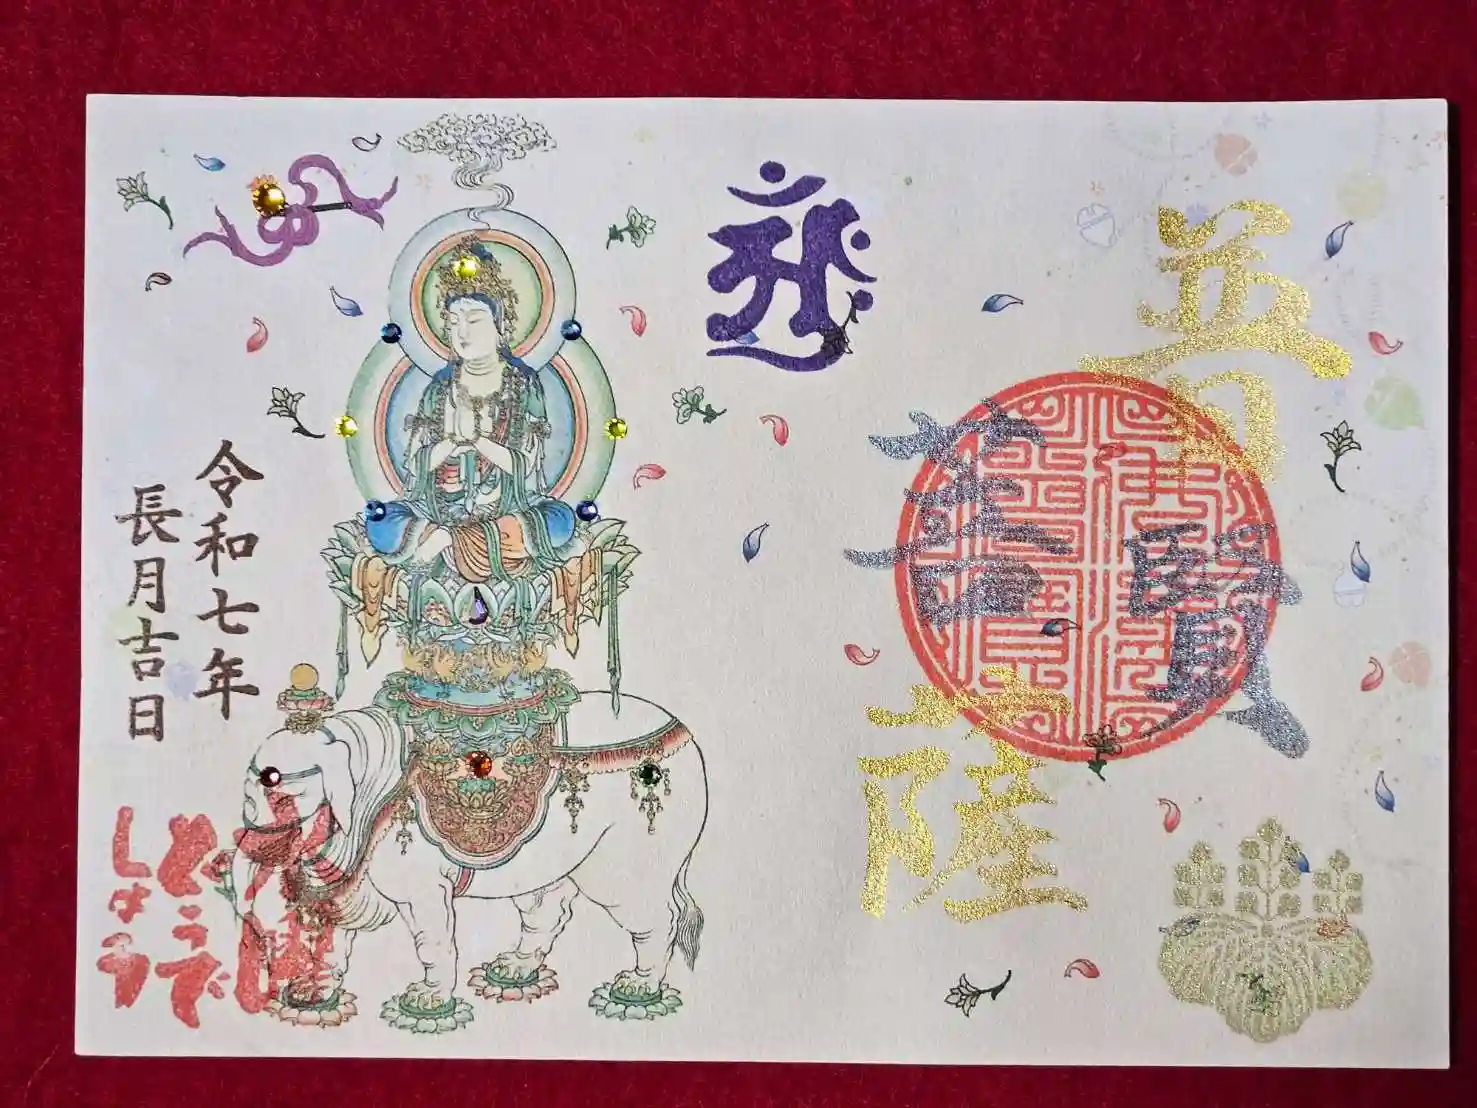 普賢
菩薩
令和七年
長月吉日
どうで
しょう